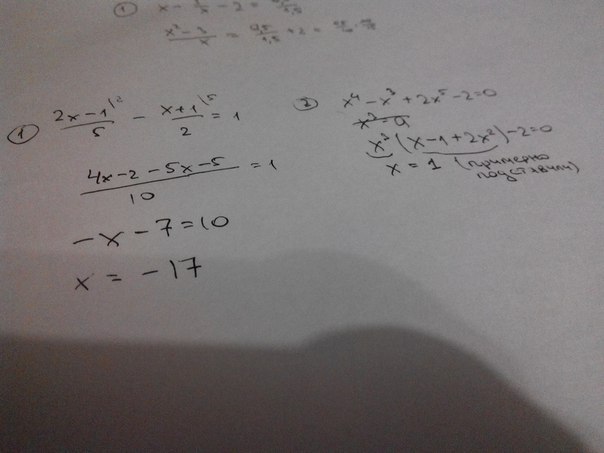 ① x - 3/x - 2 =
(x² - 3)/x = 0,5/1,5 + 2 =
① (2x-1)/5 |² - (x+1)/2 |⁵ = 1
(4x-2-5x-5)/10 = 1
-x-7=10
x = -17
② x⁴-x³+2x⁵-2=0
x³(x-1+2x²)-2=0
x = 1 (примерно
подставили)